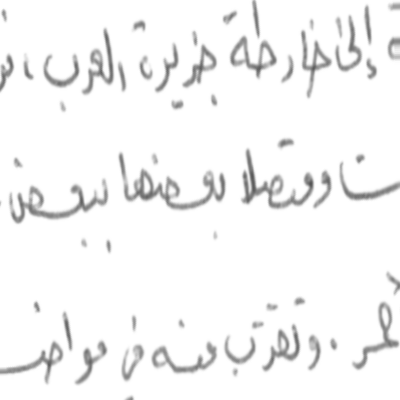 إلى خارطة جزيرة العرب ،
ومتصلا بعضها ببعض
. وتقترب منه في مواضـ